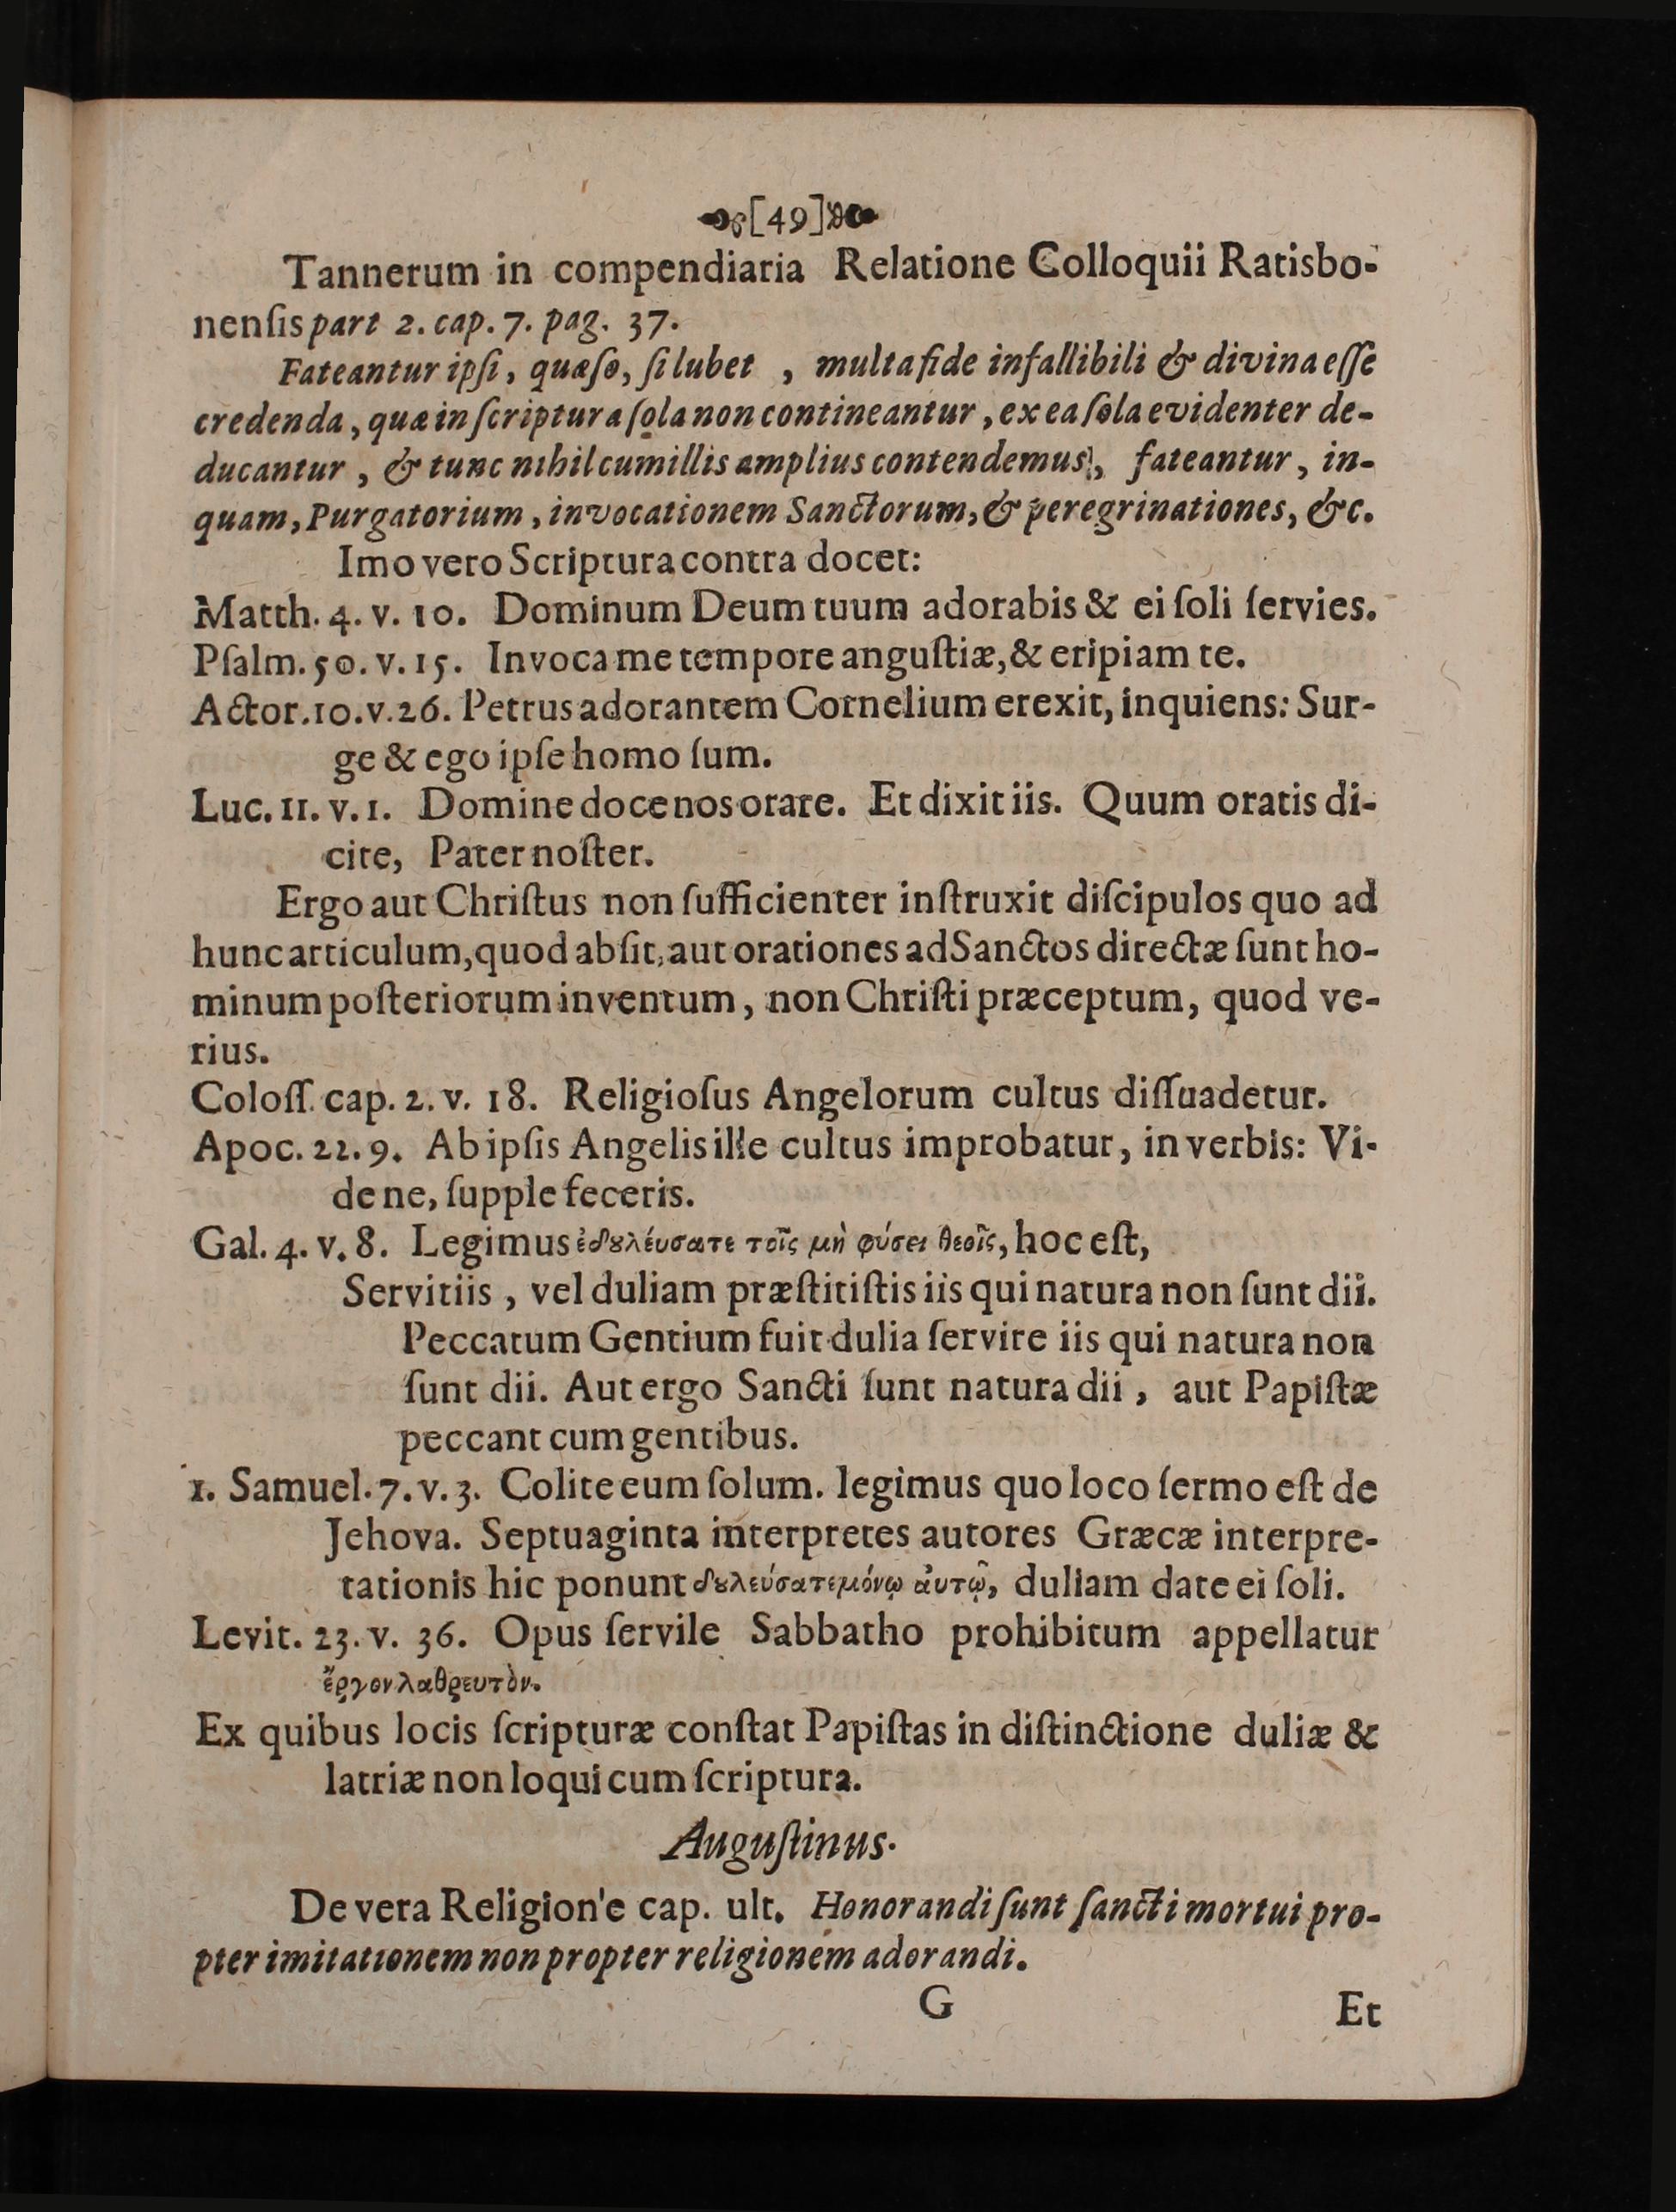 [49]
Tannerum in compendiaria Relatione Colloquii Ratisbo-
nenſis part 2. cap. 7. pag. 37.
Fateantur ipſi, quæſo, ſi lubet , multa fide infallibili & divina eſſe
credenda, quæ in ſcriptura ſola non contineantur, ex ea ſola evidenter de-
ducantur, & tunc nihil cum illis amplius contendemus, fateantur, in-
quam, Purgatorium, invocationem Sanctorum, & peregrinationes, &c.
Imo vero Scriptura contra docet:
Matth. 4. v. 10. Dominum Deum tuum adorabis & ei ſoli ſervies.
Pſalm. 50. v. 15. Invoca me tempore anguſtiæ, & eripiam te.
Actor. 10. v. 26. Petrus adorantem Cornelium erexit, inquiens: Sur-
ge & ego ipſe homo ſum.
Luc. 11. v. 1. Domine doce nos orare. Et dixit iis. Quum oratis di-
cite, Pater noſter.
Ergo aut Chriſtus non ſufficienter inſtruxit diſcipulos quo ad
hunc articulum, quod abſit, aut orationes ad Sanctos directæ ſunt ho-
minum poſteriorum inventum, non Chriſti præceptum, quod ve-
rius.
Coloſſ. cap. 2. v. 18. Religioſus Angelorum cultus diſſuadetur.
Apoc. 22. 9. Ab ipſis Angelis ille cultus improbatur, in verbis: Vi-
de ne, ſupple feceris.
Gal. 4. v. 8. Legimus ἐδȣλέυσατε τοῖς μὴ φύσει θεοῖς, hoc eſt,
Servitiis, vel duliam præſtitiſtis iis qui natura non ſunt dii.
Peccatum Gentium fuit dulia ſervire iis qui natura non
ſunt dii. Aut ergo Sancti ſunt natura dii, aut Papiſtæ
peccant cum gentibus.
1. Samuel. 7. v. 3. Colite eum ſolum. legimus quo loco ſermo eſt de
Jehova. Septuaginta interpretes autores Græcæ interpre-
tationis hic ponunt δȣλεύσατε μόνῳ ἀυτῷ, duliam date ei ſoli.
Levit. 23. v. 36. Opus ſervile Sabbatho prohibitum appellatur
ἔργον λαθρευτὸν.
Ex quibus locis ſcripturæ conſtat Papiſtas in diſtinctione duliæ &
latriæ non loqui cum ſcriptura.
Auguſtinus.
De vera Religion'e cap. ult. Honorandi ſunt ſancti mortui pro-
pter imitationem non propter religionem adorandi.
G Et